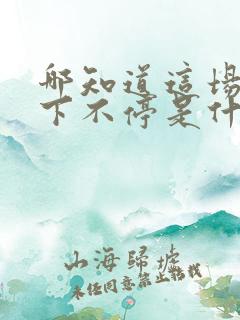 那知道這場
下不停是什
山海歸墟
未经同意禁止转载